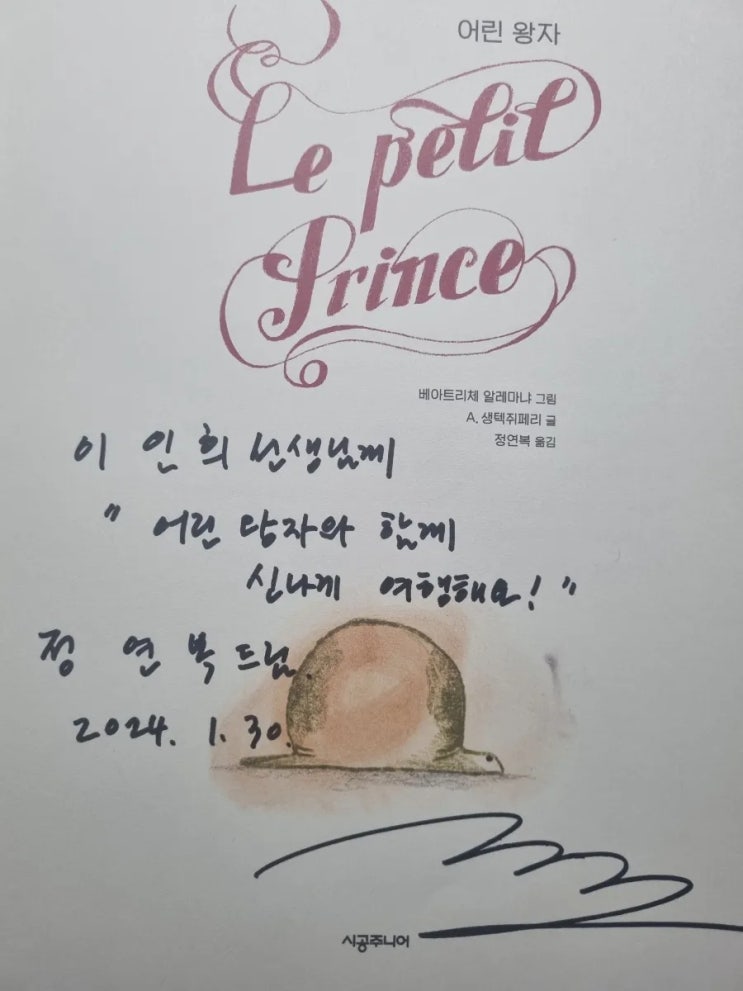 어린 왕자
Le petit
Prince
베아트리체 알레마냐 그림
A. 생텍쥐페리 글
정연복 옮김
이 인 희 선생님께
" 어린 왕자와 함께
신나게 여행해요! "
정 연 복 드림.
2024. 1. 30.
시공주니어